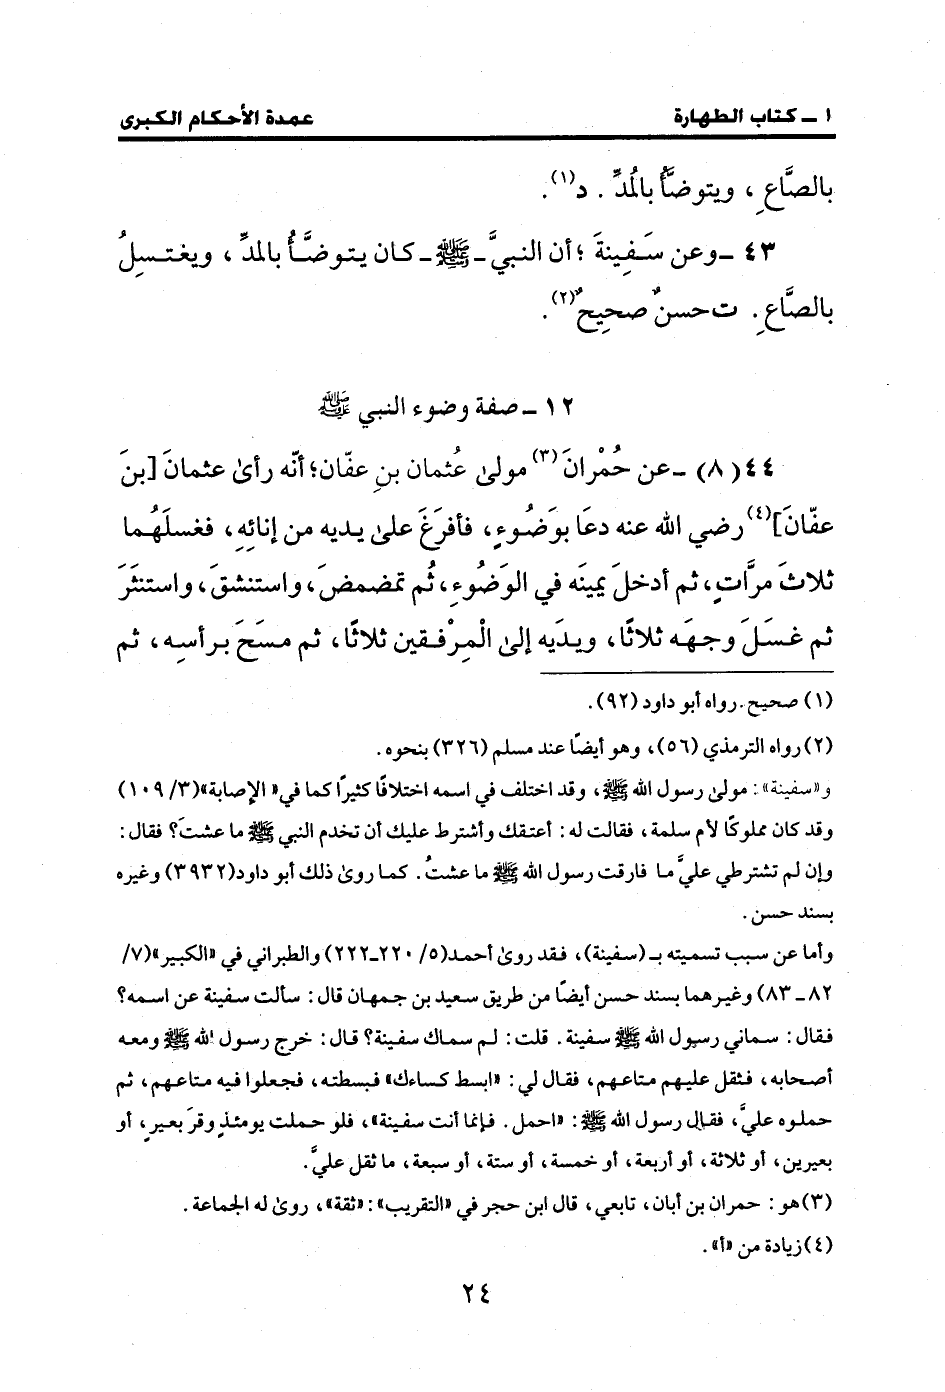 ١ ـ كتاب الطهارة
عمدة الأحكام الكبرى
بالصَّاعِ ، ويتوضَّأُ بالمُدِّ . د(١).
٤٣ ـ وعن سَفِينةَ ؛ أن النبيَّ ـ ﷺ ـ كان يتوضَّأُ بالمدِّ ، ويغتسلُ
بالصَّاعِ . ت حسنٌ صحيحٌ(٢).
١٢ ـ صفة وضوء النبي ﷺ
٤٤ (٨) ـ عن حُمْرانَ(٣) مولىٰ عُثمان بنِ عفّان؛ أنّه رأىٰ عثمانَ [بنَ
عفّانَ](٤) رضي الله عنه دعَا بوَضُوءٍ، فأفرَغَ علىٰ يديه من إنائِهِ، فغسلَهُما
ثلاثَ مرَّاتٍ، ثم أدخلَ يمينَه في الوَضُوءِ، ثُم تمضمضَ، واستنشقَ، واستنثَرَ
ثم غسَلَ وجهَه ثلاثًا، ويدَيه إلىٰ الْمِرْفقين ثلاثًا، ثم مسَحَ برأسِه، ثم
(١) صحيح. رواه أبو داود (٩٢).
(٢) رواه الترمذي (٥٦)، وهو أيضًا عند مسلم (٣٢٦) بنحوه.
و«سفينة»: مولىٰ رسول الله ﷺ، وقد اختلف في اسمه اختلافًا كثيرًا كما في «الإصابة»(٣/ ١٠٩)
وقد كان مملوكًا لأم سلمة، فقالت له: أعتقك وأشترط عليك أن تخدم النبي ﷺ ما عشتَ؟ فقال:
وإن لم تشترطي عليَّ ما فارقت رسول الله ﷺ ما عشتُ. كما روىٰ ذلك أبو داود(٣٩٣٢) وغيره
بسند حسن.
وأما عن سبب تسميته بـ (سفينة)، فقد روىٰ أحمد(٥/ ٢٢٠ـ٢٢٢) والطبراني في «الكبير»(٧/
٨٢ ـ ٨٣) وغيرهما بسند حسن أيضًا من طريق سعيد بن جمهان قال: سألت سفينة عن اسمه؟
فقال: سماني رسول الله ﷺ سفينة. قلت: لم سماك سفينة؟ قال: خرج رسول الله ﷺ ومعه
أصحابه، فثقل عليهم متاعهم، فقال لي: «ابسط كساءك» فبسطته، فجعلوا فيه متاعهم، ثم
حملوه عليَّ، فقال رسول الله ﷺ: «احمل. فإنما أنت سفينة»، فلو حملت يومئذٍ وقرَ بعيرٍ، أو
بعيرين، أو ثلاثة، أو أربعة، أو خمسة، أو ستة، أو سبعة، ما ثقل عليَّ.
(٣) هو: حمران بن أبان، تابعي، قال ابن حجر في «التقريب»: «ثقة»، روىٰ له الجماعة.
(٤) زيادة من «أ».
٢٤